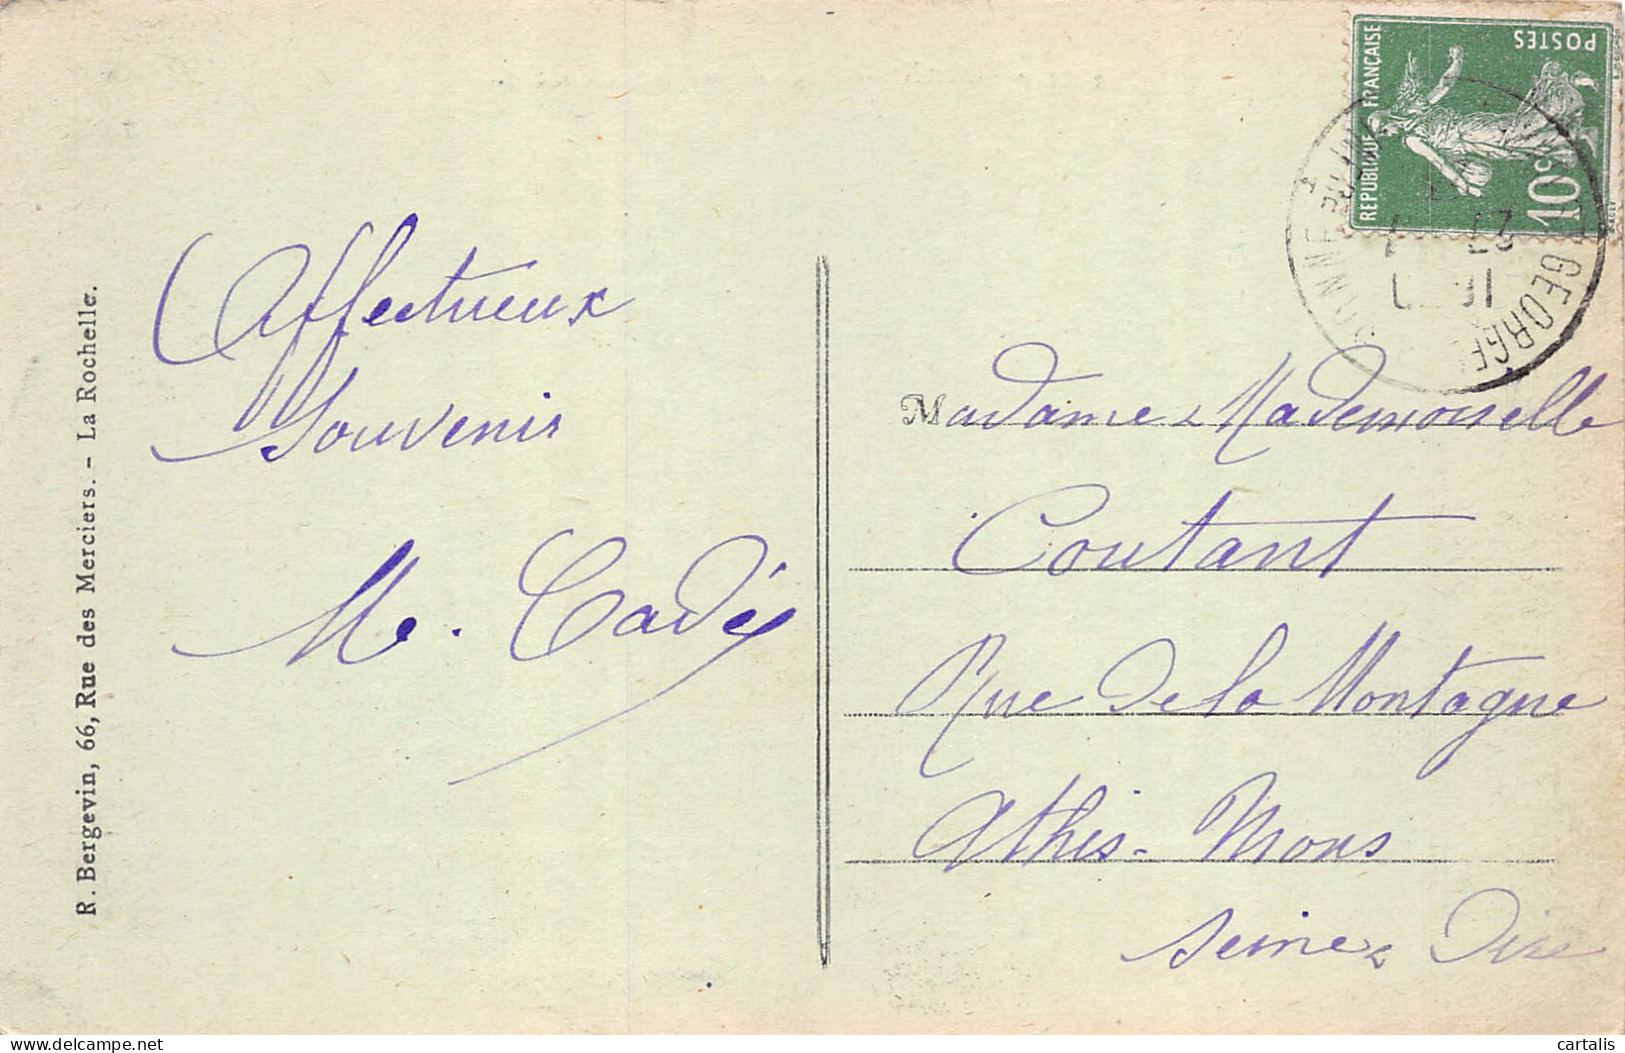 R. Bergevin, 66, Rue des Merciers. - La Rochelle.
Affectueux
Souvenir
M. Cadix
POSTES
REPUBLIQUE FRANÇAISE
10c
GEORGES
Madame & Mademoiselle
Coutant
Rue de la Montagne
Athis-Mons
Seine & Oise
cartalis